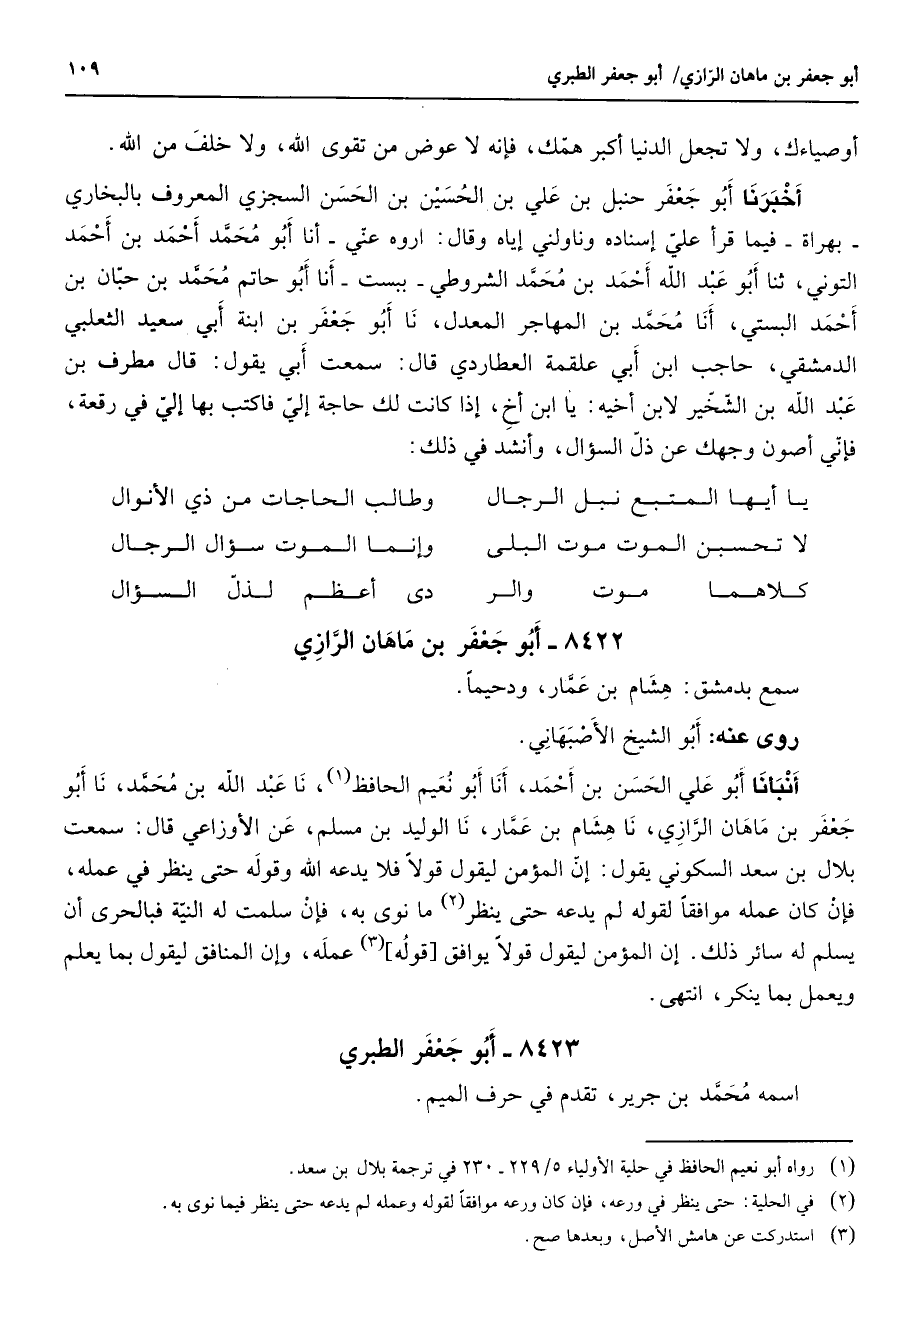 أبو جعفر بن ماهان الرّازي/ أبو جعفر الطبري ١٠٩
أوصياءك، ولا تجعل الدنيا أكبر همّك، فإنه لا عوض من تقوى الله، ولا خلفَ من الله.
أَخْبَرَنَا أَبُو جَعْفَر حنبل بن علي بن الحُسَيْن بن الحَسَن السجزي المعروف بالبخاري
ـ بهراة ـ فيما قرأ عليّ إسناده وناولني إياه وقال: اروه عنّي ـ أنا أَبُو مُحَمَّد أَحْمَد بن أَحْمَد
التوني، ثنا أَبُو عَبْد الله أَحْمَد بن مُحَمَّد الشروطي ـ ببست ـ أَنا أَبُو حاتم مُحَمَّد بن حبّان بن
أَحْمَد البستي، أَنَا مُحَمَّد بن المهاجر المعدل، نَا أَبُو جَعْفَر بن ابنة أَبي سعيد الثعلبي
الدمشقي، حاجب ابن أَبي علقمة العطاردي قال: سمعت أَبي يقول: قال مطرف بن
عَبْد الله بن الشّخّير لابن أخيه: يا ابن أخ، إذا كانت لك حاجة إليّ فاكتب بها إليّ في رقعة،
فإنّي أصون وجهك عن ذلّ السؤال، وأنشد في ذلك:
يا أيها المتبع نبل الرجال وطالب الحاجات من ذي الأنوال
لا تحسبن الموت موت البلى وإنما الموت سؤال الرجال
كلاهما موت والر دى أعظم لذلّ السؤال
٨٤٢٢ ـ أَبُو جَعْفَر بن مَاهَان الرَّازِي
سمع بدمشق: هِشَام بن عَمَّار، ودحيماً.
روى عنه: أَبُو الشيخ الأَصْبَهَانِي.
أَنْبَانَا أَبُو علي الحَسَن بن أَحْمَد، أَنَا أَبُو نُعَيم الحافظ(١)، نَا عَبْد الله بن مُحَمَّد، نَا أَبُو
جَعْفَر بن مَاهَان الرَّازِي، نَا هِشَام بن عَمَّار، نَا الوليد بن مسلم، عَن الأوزاعي قال: سمعت
بلال بن سعد السكوني يقول: إنّ المؤمن ليقول قولاً فلا يدعه الله وقولَه حتى ينظر في عمله،
فإنْ كان عمله موافقاً لقوله لم يدعه حتى ينظر(٢) ما نوى به، فإنْ سلمت له النيّة فبالحرى أن
يسلم له سائر ذلك. إن المؤمن ليقول قولاً يوافق [قولُه](٣) عملَه، وإن المنافق ليقول بما يعلم
ويعمل بما ينكر، انتهى.
٨٤٢٣ ـ أَبُو جَعْفَر الطبري
اسمه مُحَمَّد بن جرير، تقدم في حرف الميم.
(١) رواه أبو نعيم الحافظ في حلية الأولياء ٥/ ٢٢٩ ـ ٢٣٠ في ترجمة بلال بن سعد.
(٢) في الحلية: حتى ينظر في ورعه، فإن كان ورعه موافقاً لقوله وعمله لم يدعه حتى ينظر فيما نوى به.
(٣) استدركت عن هامش الأصل، وبعدها صح.